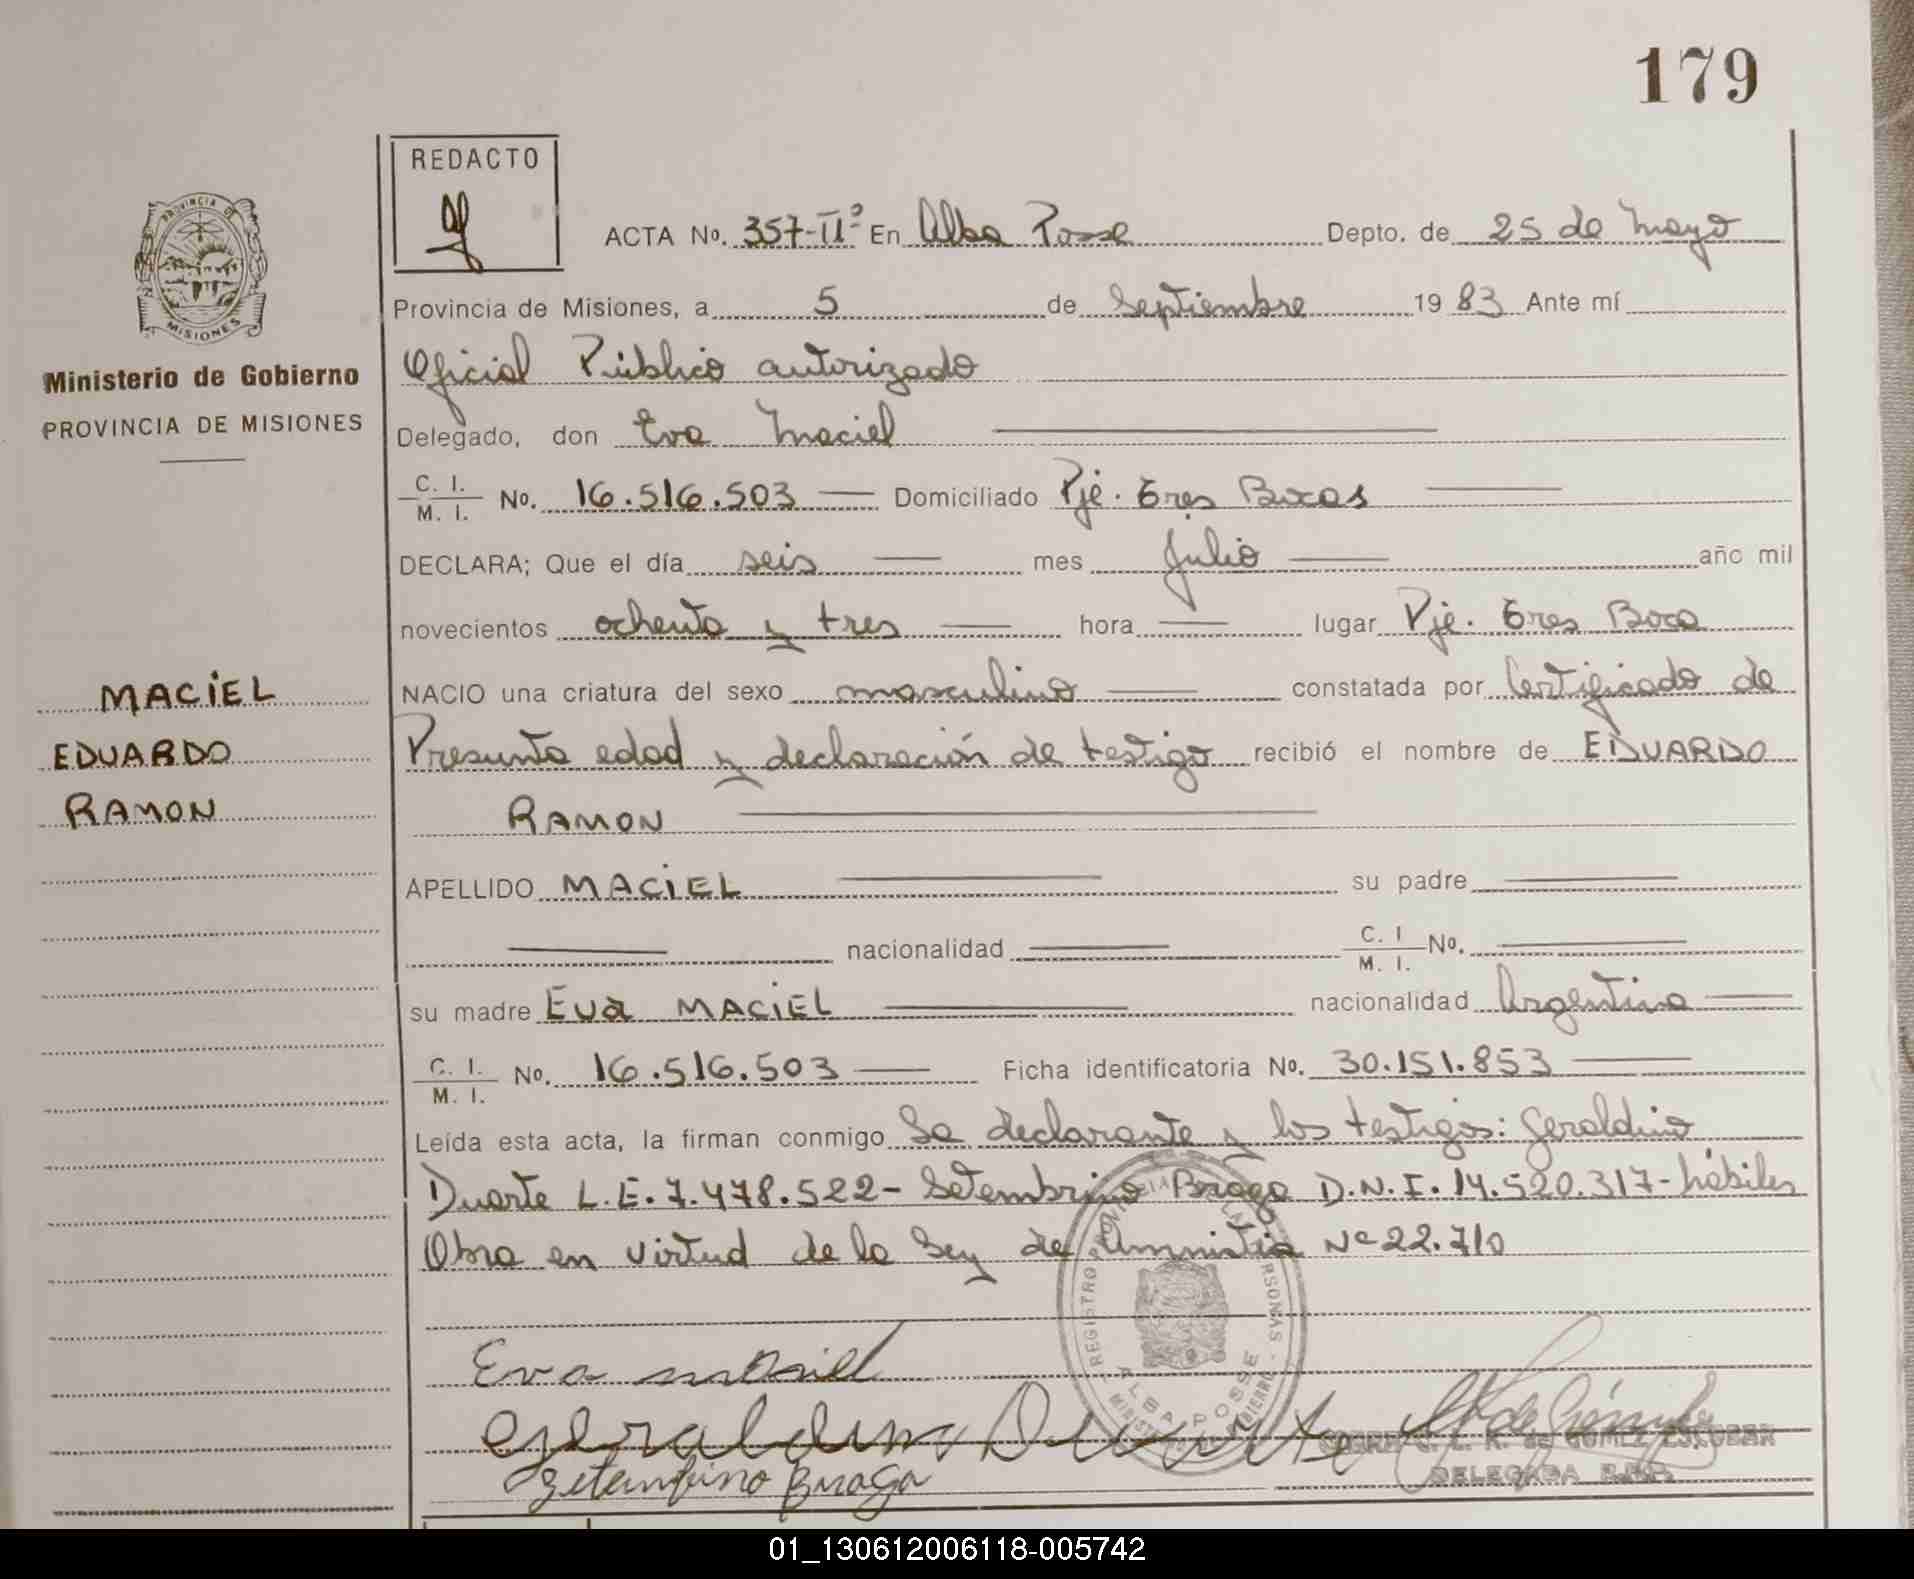 179
REDACTO
PROVINCIA DE
MISIONES
Ministerio de Gobierno
PROVINCIA DE MISIONES
ACTA No. 357-IIº En Alba Posse Depto. de 25 de Mayo
Provincia de Misiones, a 5 de Septiembre 1983 Ante mí
Oficial Público autorizado
Delegado, don Eva Maciel
C. I. / M. I. No. 16.516.503 — Domiciliado Pje. Tres Bocas
DECLARA; Que el día seis — mes Julio — año mil
novecientos ochenta y tres — hora — lugar Pje. Tres Boca
NACIO una criatura del sexo masculino — constatada por Certificado de
Presunta edad y declaración de testigo recibió el nombre de EDUARDO
RAMON —
APELLIDO MACIEL — su padre —
— nacionalidad — C. I / M. I. No. —
su madre Eva MACIEL — nacionalidad Argentina —
C. I. / M. I. No. 16.516.503 — Ficha identificatoria No. 30.151.853 —
Leída esta acta, la firman conmigo La declarante y los testigos: Geraldino
Duarte L.E. 7.478.522- Setembrino Braga D.N.I. 14.520.317- hábiles
Obra en virtud de la Ley de Amnistia Nº 22.710
MACIEL
EDUARDO
RAMON
Eva maciel
Geraldino Duarte
Zetembrino Braga
REGISTRO PROVINCIAL DE LAS PERSONAS
ALBA POSSE
DE GOMEZ ESCOBAR
DELEGADA R.P.P.
01_130612006118-005742